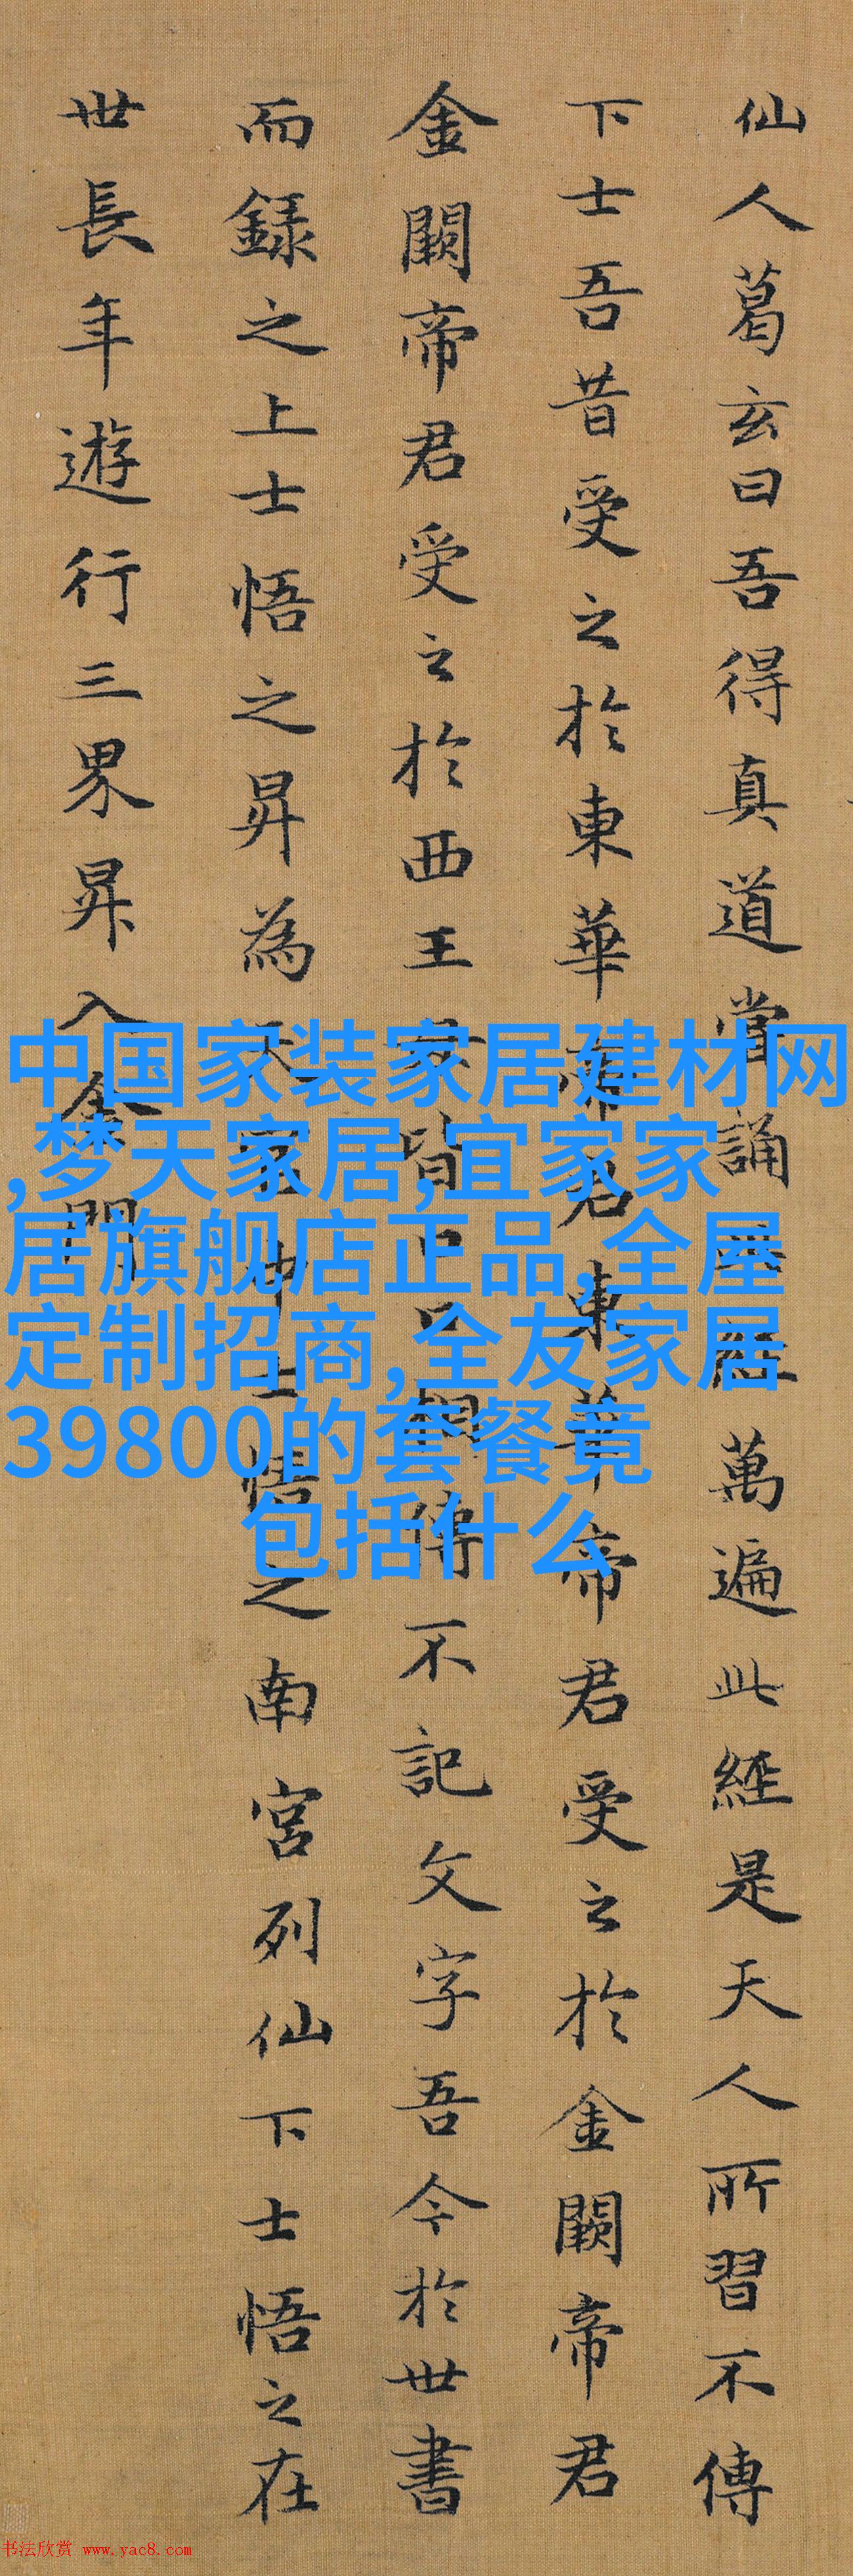 仙人葛玄曰吾得真道當誦經萬遍此經是天人所習不傳
下士吾昔受之於東華帝君東華帝君受之於金闕帝君
金闕帝君受之於西王母皆口口相傳不記文字吾今於世書
而録之上士悟之昇為天官中士悟之南宮列仙下士悟之在
世長年遊行三界昇入金門
中国家装家居建材网
,梦天家居,宜家家
居旗舰店正品,全屋
定制招商,全友家居
39800的套餐竟
包括什么
书法欣赏 www.yac8.com